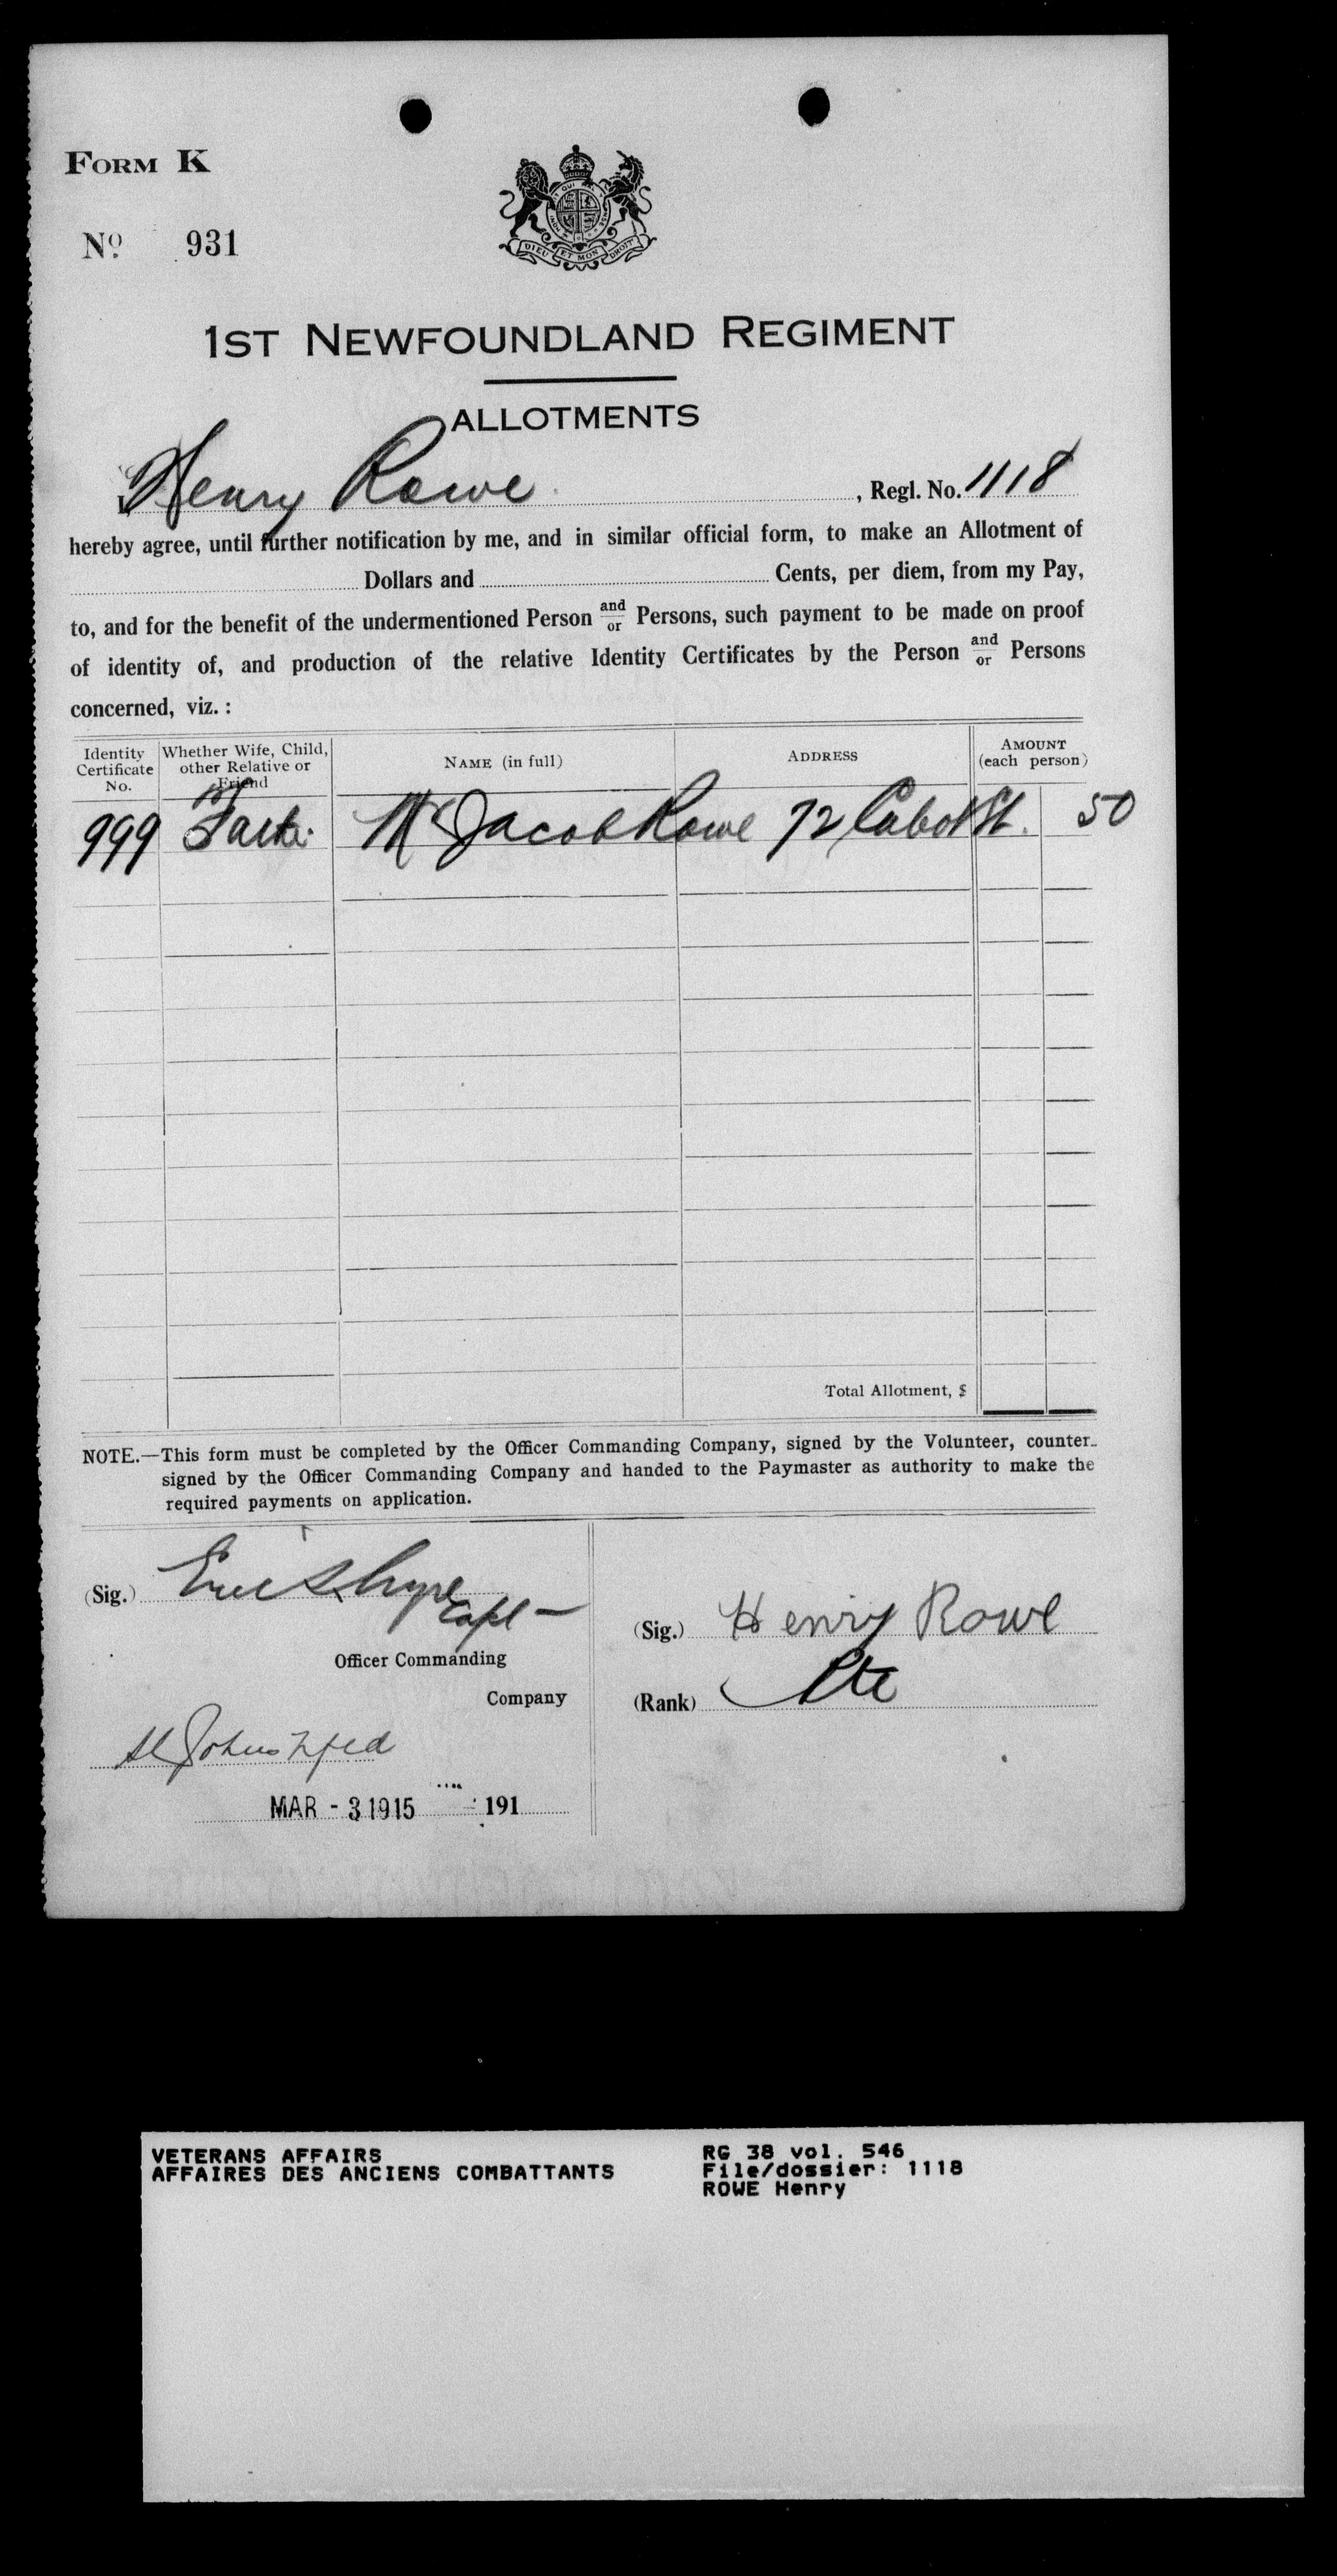 FORM K
No. 931
DIEU ET MON DROIT
1ST NEWFOUNDLAND REGIMENT
ALLOTMENTS
I, Henry Rowe, Regl. No. 1118
hereby agree, until further notification by me, and in similar official form, to make an Allotment of
Dollars and Cents, per diem, from my Pay,
to, and for the benefit of the undermentioned Person and/or Persons, such payment to be made on proof
of identity of, and production of the relative Identity Certificates by the Person and/or Persons
concerned, viz. :
Identity Certificate No. Whether Wife, Child, other Relative or Friend NAME (in full) ADDRESS AMOUNT (each person)
999 Jacob Rowe 72 Cabot St. 50
Total Allotment, $
NOTE.—This form must be completed by the Officer Commanding Company, signed by the Volunteer, counter-
signed by the Officer Commanding Company and handed to the Paymaster as authority to make the
required payments on application.
(Sig.) Capt
Officer Commanding
Company
(Sig.) Henry Rowe
(Rank) Pte
St Johns Nfld
MAR - 3 1915 191
VETERANS AFFAIRS
AFFAIRES DES ANCIENS COMBATTANTS
RG 38 vol. 546
File/dossier: 1118
ROWE Henry